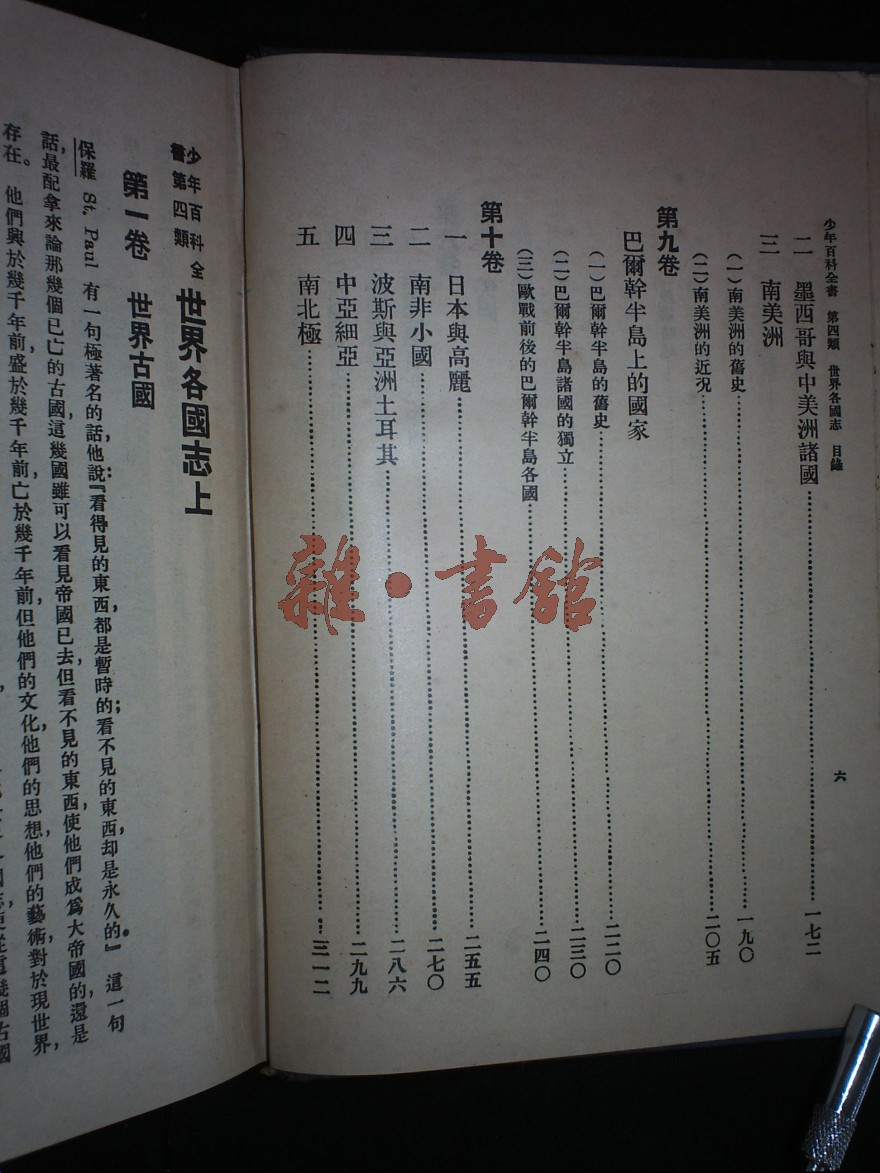 少年百科全書 第四類 世界各國志 目錄
六
二 墨西哥與中美洲諸國……一七二
三 南美洲
（一）南美洲的舊史……一九〇
（二）南美洲的近況……二〇五
第九卷
巴爾幹半島上的國家
（一）巴爾幹半島的舊史……二二〇
（二）巴爾幹半島諸國的獨立……二三〇
（三）歐戰前後的巴爾幹半島各國……二四〇
第十卷
一 日本與高麗……二五五
二 南非小國……二七〇
三 波斯與亞洲土耳其……二八六
四 中亞細亞……二九九
五 南北極……三一二
雜·書館
少年百科全書第四類 世界各國志上
第一卷 世界古國
保羅 St. Paul 有一句極著名的話，他說：『看得見的東西，都是暫時的；看不見的東西，却是永久的。』 這一句
話，最配拿來論那幾個已亡的古國，這幾國雖可以看見帝國已去，但看不見的東西，使他們成爲大帝國的，還是
存在。 他們興於幾千年前，盛於幾千年前，亡於幾千年前，但他們的文化，他們的思想，他們的藝術，對於現世界，